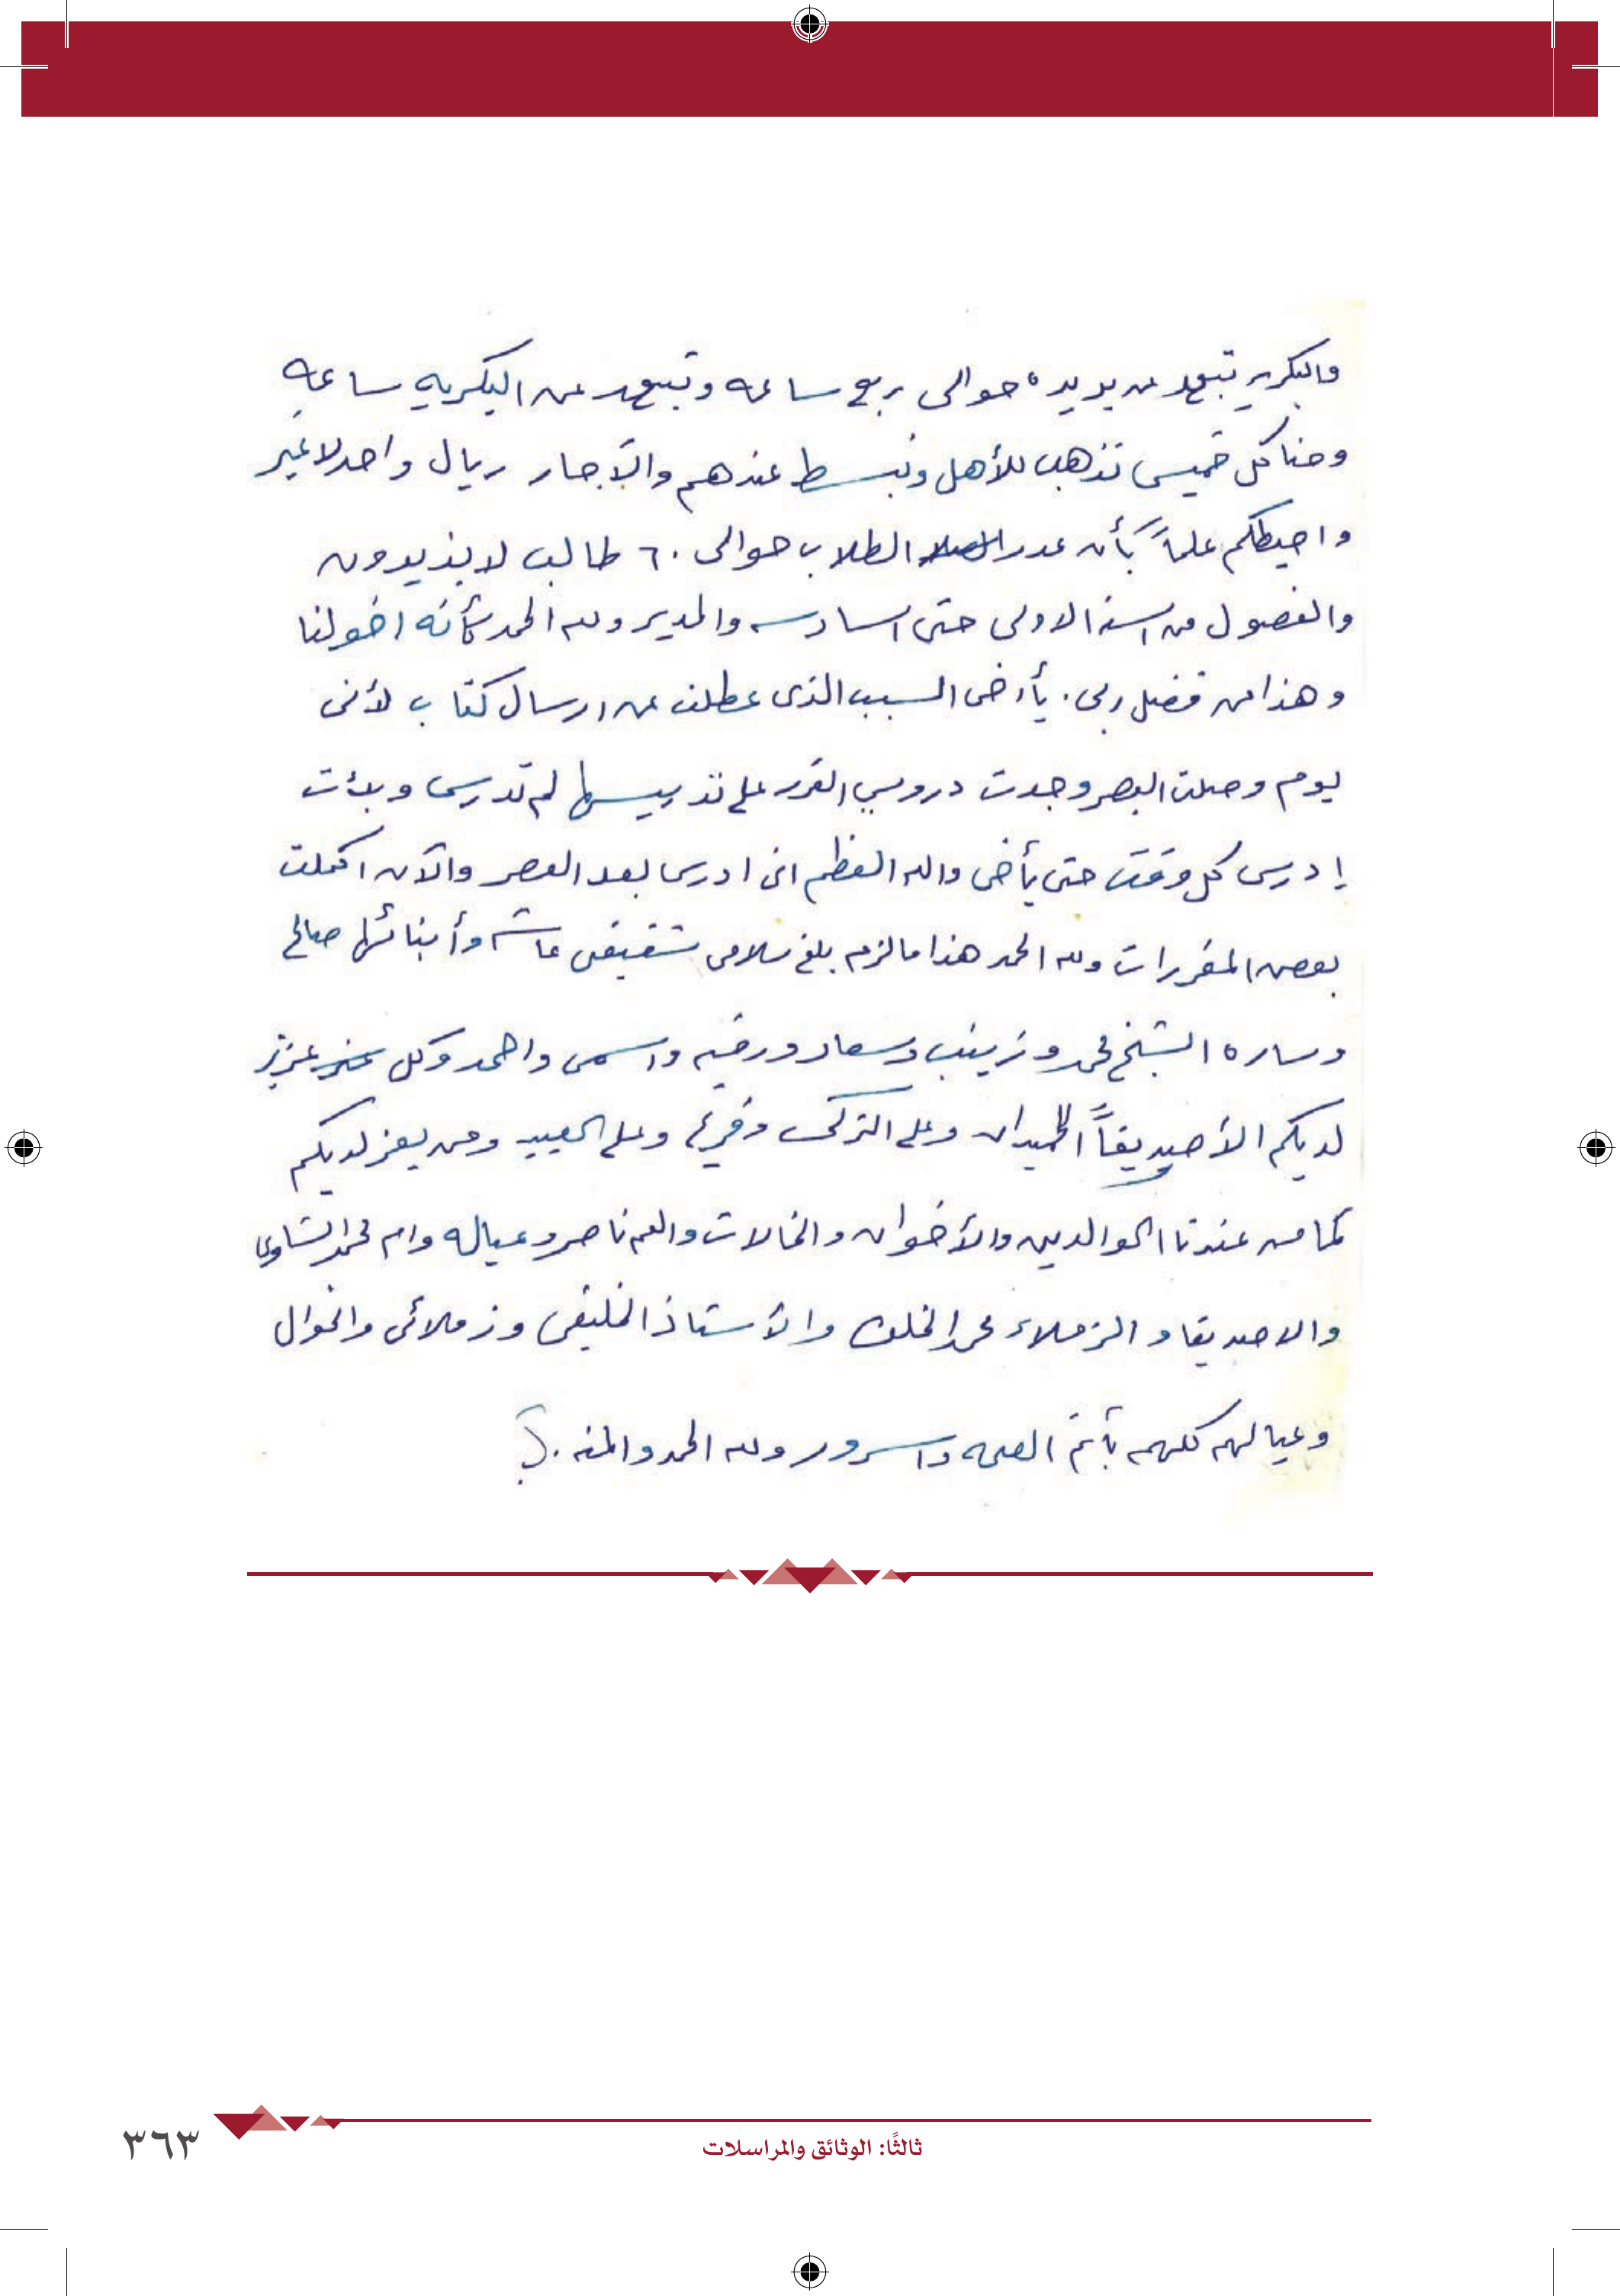 والبكريه تبعد عن بريده حوالى ربع ساعه وتبعد عن البكريه ساعه
وحنا كل خميس نذهب للأهل ونبسط عندهم والآجار ريال واحد لا غير
واحيطكم علماً بأن عدد الطلاب حوالى ٦٠ طالب لا يزيدون
والفصول من السنه الاولى حتى السادسه والمدير ولله الحمد كأنه اخو لنا
وهذا من فضل ربى . يأخى السبب الذى عطلنى عن ارسال كتاب لأنى
يوم وصلت البصر وجدت دروسي المقرر على تدريسها لم تدرس وبدأت
ادرس كل وقت حتى يأخى والله العظيم انى ادرس بعد العصر والآن اكملت
بعض المقررات ولله الحمد هذا ما لزم بلغ سلامى شقيقتى عائشه وأبنائها صالح
وساره الشيخ محمد وزينب وسعاد ورقيه واسمى واحمد وكل عزيز
لديكم الأصديقاً الحميدان وعلى التركى وعلى العبيد ومن يعز لديكم
كما من عندنا الوالدين والأخوان والخالات والعم ناصر وعياله وام محمد الشاوى
والاصديقا والزملاء محمد الخلف والأستاذ الخليفى وزملائى والخوال
وعيالهم كلهم بأتم الصحه والسرور ولله الحمد والمنه .
ثالثًا: الوثائق والمراسلات
٣٦٣